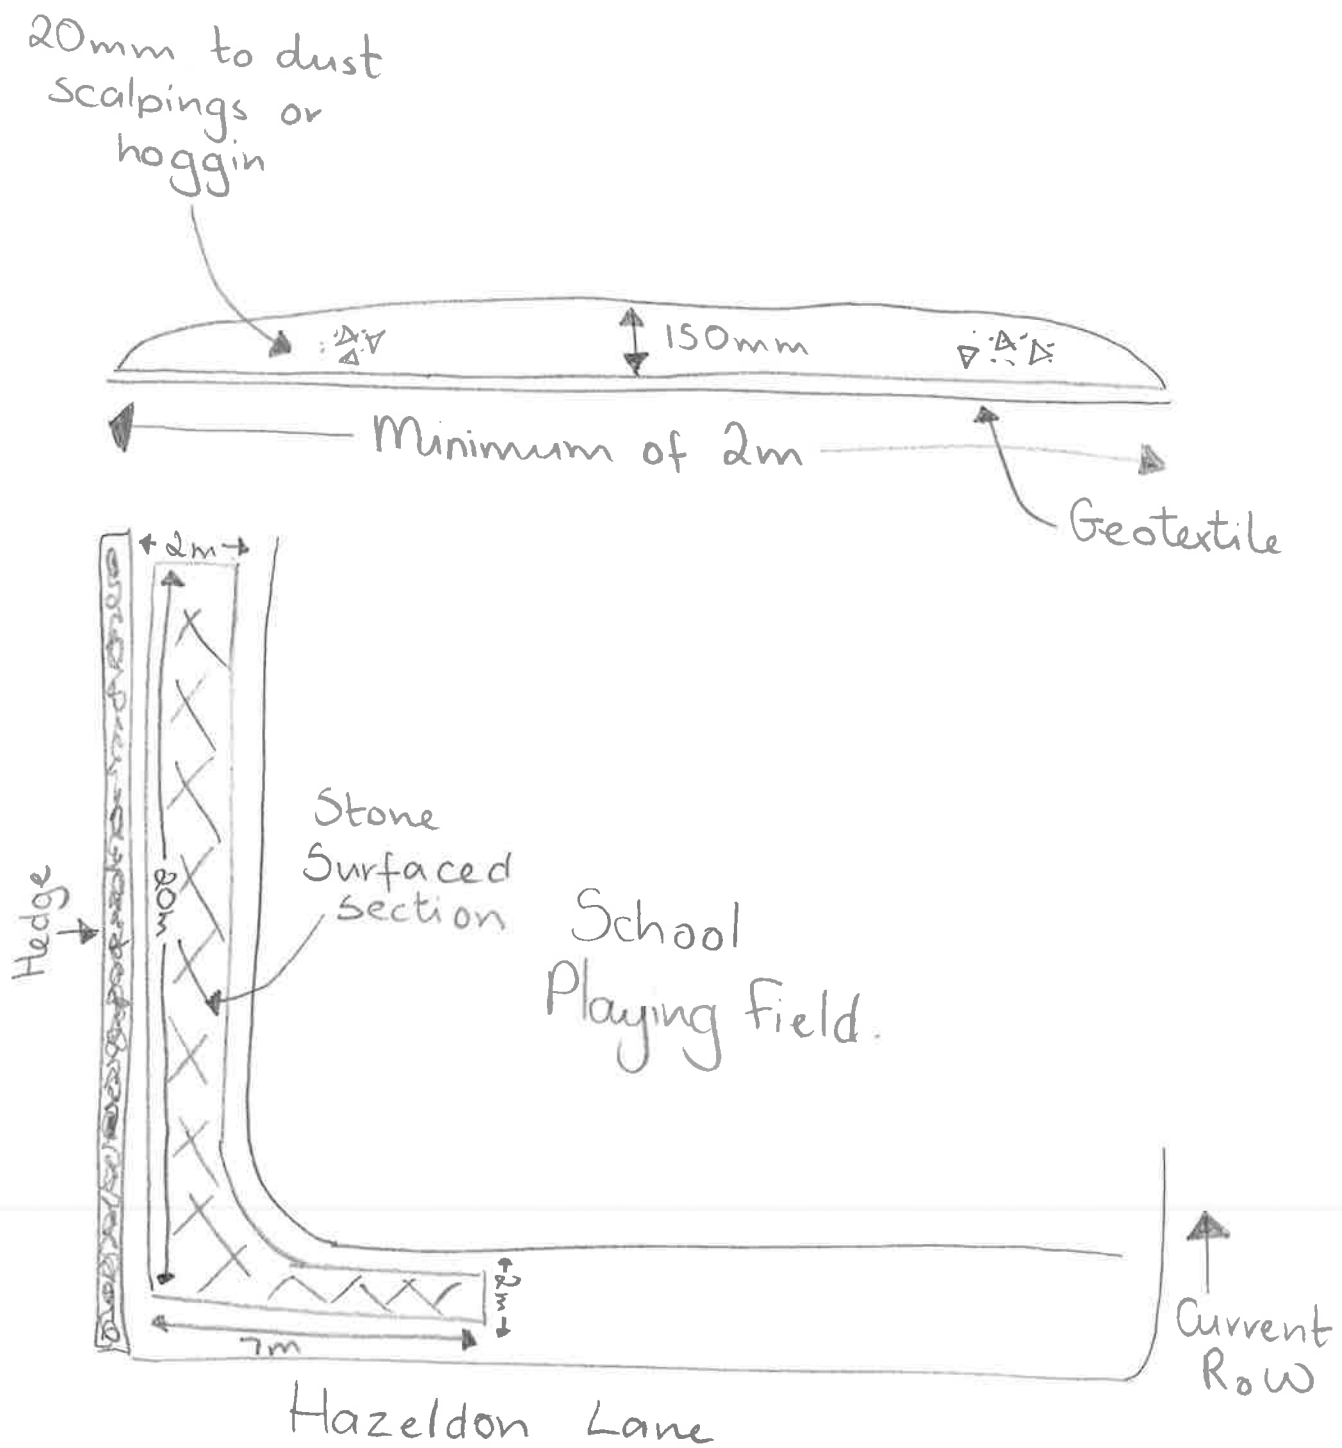 20mm to dust
scalpings or
hoggin
150mm
Minimum of 2m
Geotextile
2m
20m
Hedge
Stone
Surfaced
section
School
Playing Field.
2m
7m
Current
RoW
Hazeldon Lane